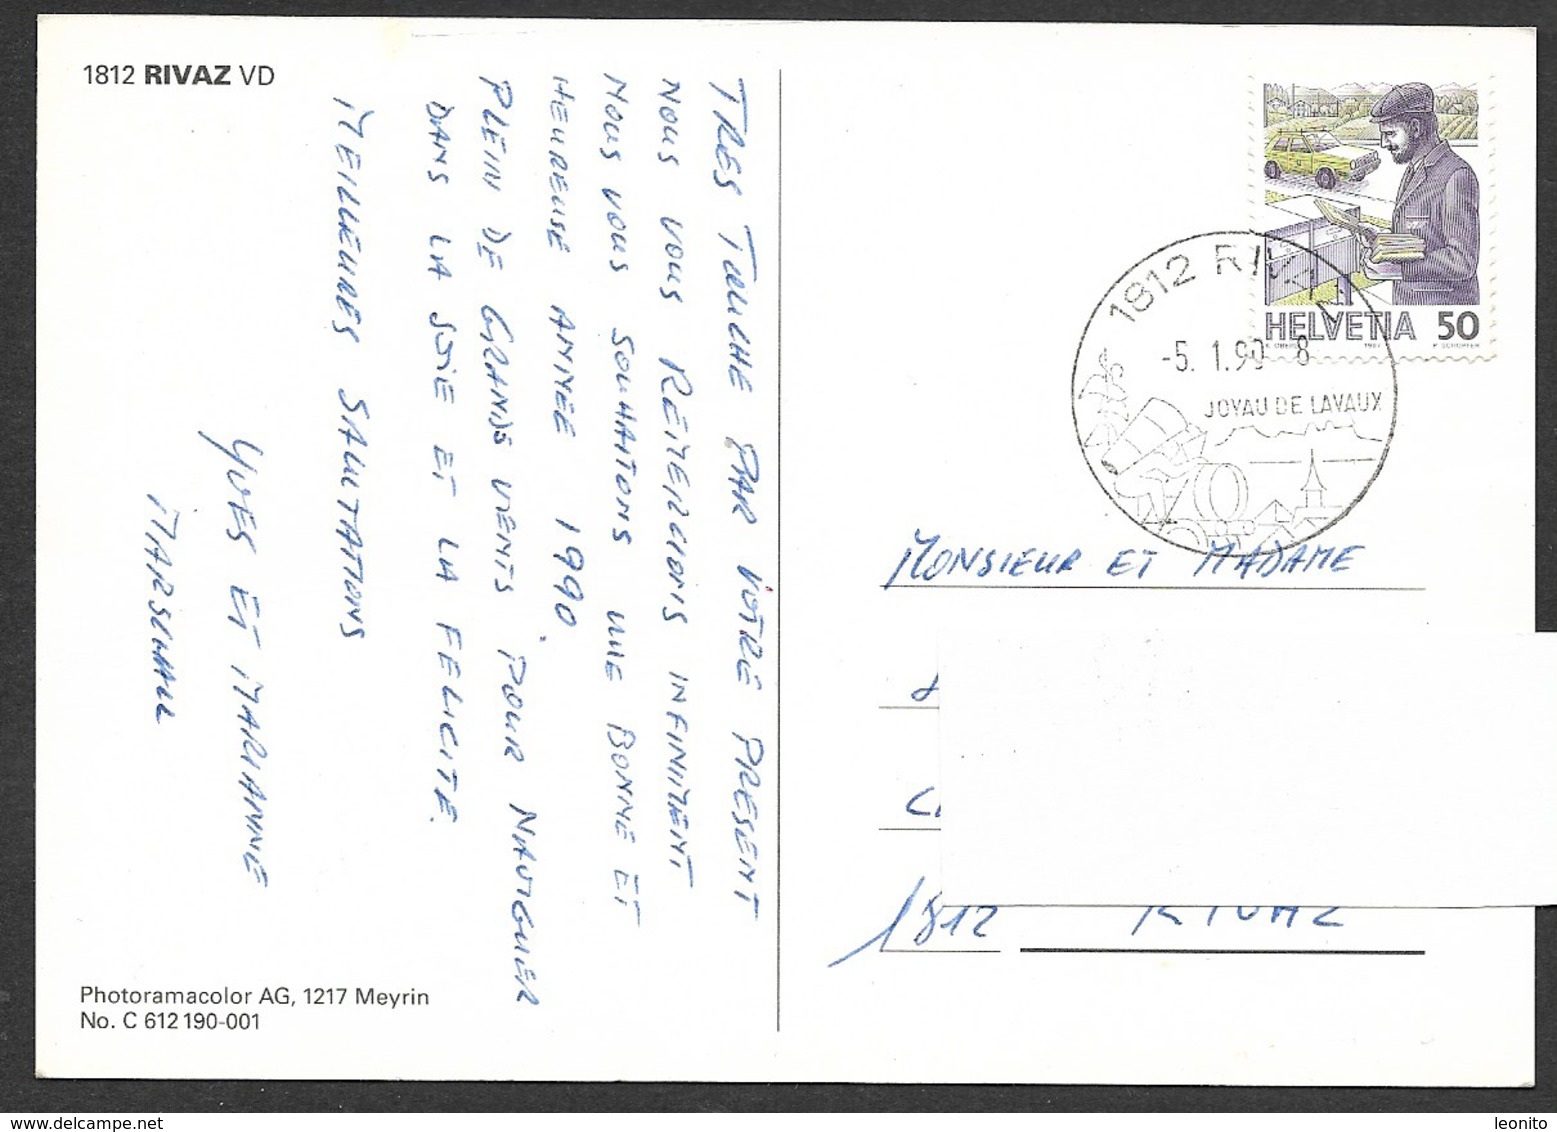 1812 RIVAZ VD
TRES TOUCHÉ PAR VOTRE PRESENT
NOUS VOUS REMERCIONS INFINIMENT
NOUS VOUS SOUHAITONS UNE BONNE ET
HEUREUSE ANNÉE 1990.
PLEIN DE GRANDS VENTS POUR NAVIGUER
DANS LA JOIE ET LA FELICITE.
MEILLEURES SALUTATIONS
YVES ET MARIANNE
Photoramacolor AG, 1217 Meyrin
No. C 612 190-001
HELVETIA 50
1987
1812 RIVAZ
-5. 1.90 8
JOYAU DE LAVAUX
MONSIEUR ET MADAME
1812 RIVAZ
leonito